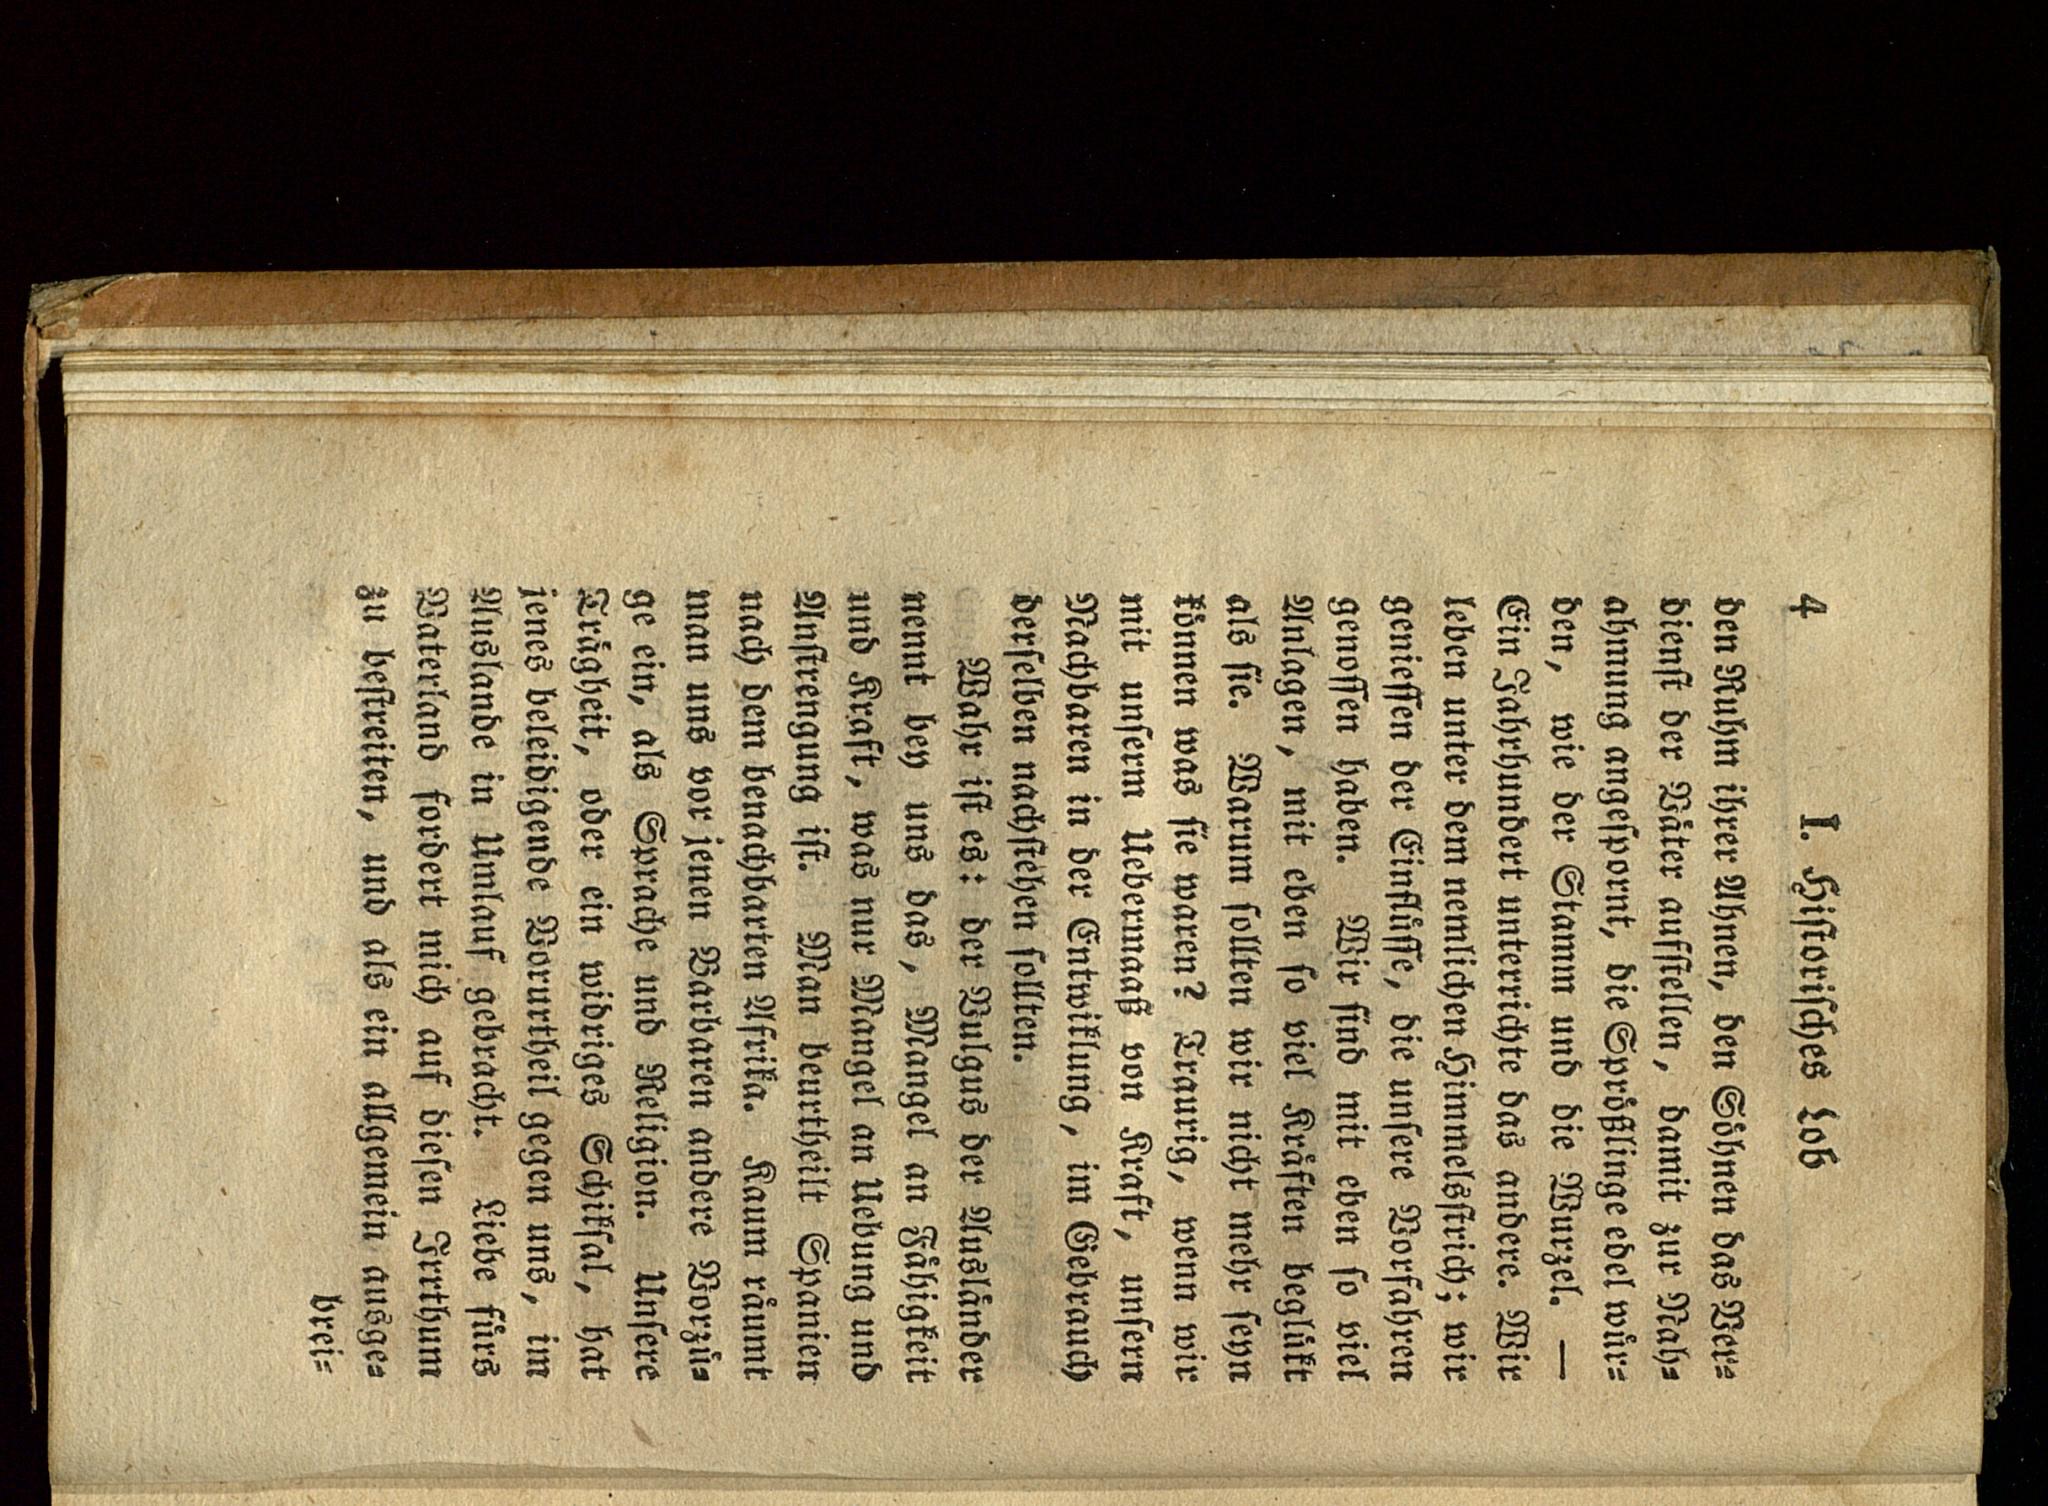 4 I. Hiſtoriſches Lob
den Ruhm ihrer Ahnen, den Söhnen das Ver⸗
dienſt der Väter aufſtellen, damit zur Nah⸗
ahmung angeſpornt, die Sprößlinge edel wür⸗
den, wie der Stamm und die Wurzel. —
Ein Jahrhundert unterrichte das andere. Wir
leben unter dem nemlichen Himmelsſtrich; wir
genieſſen der Einflüſſe, die unſere Vorfahren
genoſſen haben. Wir ſind mit eben ſo viel
Anlagen, mit eben ſo viel Kräften beglükt
als ſie. Warum ſollten wir nicht mehr ſeyn
können was ſie waren? Traurig, wenn wir
mit unſerm Uebermaaß von Kraft, unſern
Nachbaren in der Entwiklung, im Gebrauch
derſelben nachſtehen ſollten.
Wahr iſt es: der Vulgus der Ausländer
nennt bey uns das, Mangel an Fähigkeit
und Kraft, was nur Mangel an Uebung und
Anſtrengung iſt. Man beurtheilt Spanien
nach dem benachbarten Afrika. Kaum räumt
man uns vor jenen Barbaren andere Vorzü⸗
ge ein, als Sprache und Religion. Unſere
Trägheit, oder ein widriges Schikſal, hat
jenes beleidigende Vorurtheil gegen uns, im
Auslande in Umlauf gebracht. Liebe fürs
Vaterland fordert mich auf dieſen Irrthum
zu beſtreiten, und als ein allgemein ausge⸗
brei⸗